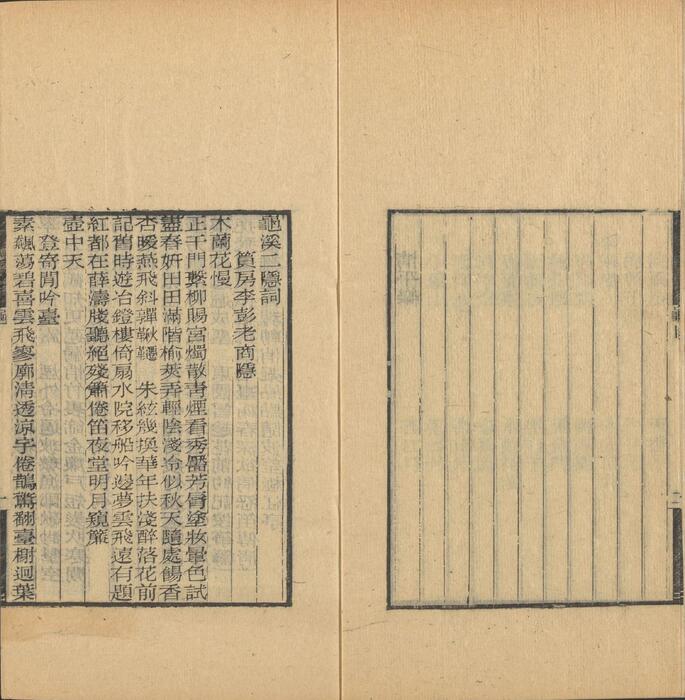 龜溪二隱詞
篔房李彭老商隱
木蘭花慢
正千門繫柳賜宮燭散靑煙看秀靨芳脣塗妝暈色試
盡春妍田田滿階榆莢弄輕陰淺冷似秋天隨處餳香
杏暖燕飛斜嚲鞦韆　朱絃幾換華年扶淺醉落花前
記舊時遊冶鐙樓倚扇水院移船吟邊夢雲飛遠有題
紅都在薛濤牋聽絕殘簫倦笛夜堂明月窺簾
壺中天
登寄閒吟臺
素飈蕩碧喜雲飛寥廓淸透涼宇倦鵲驚翻臺榭迥葉